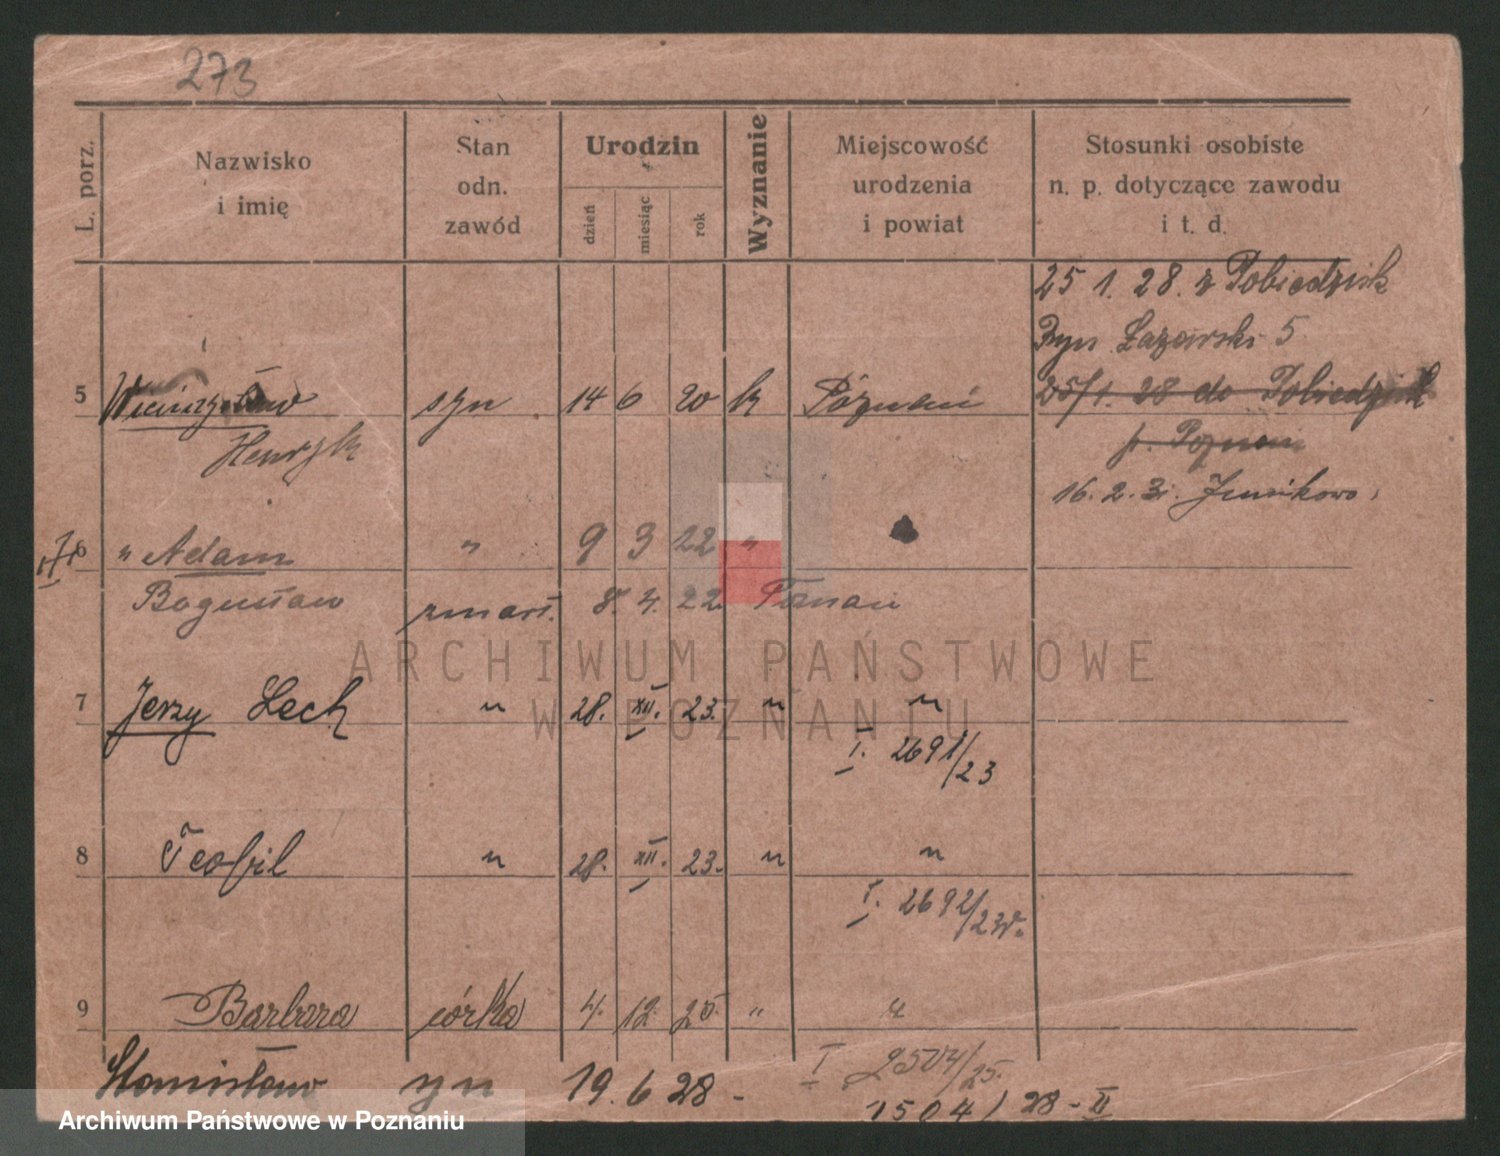 273
L. porz.
Nazwisko
i imię
Stan
odn.
zawód
Urodzin
dzień
miesiąc
rok
Wyznanie
Miejscowość
urodzenia
i powiat
Stosunki osobiste
n. p. dotyczące zawodu
i t. d.
25 1. 28. z Pobiedzisk
Ryn. Łazarski 5
5 syn 14 6 20 k Poznań 25/1. 28 do Pobiedzisk
Henryk p. Poznań
16. 2. Junikowo
6 " Adam " 9 3 22 "
Bogusław zmarł. 8. 4. 22 Poznań
ARCHIWUM PAŃSTWOWE
W POZNANIU
7 Jerzy Lech " 28. XII. 23. " "
I. 2691/23
8 Teofil " 28. XII. 23. " "
I. 2692/23
9 Barbara córka 4. 12. 25. " "
I 2504/25.
Stanisław syn 19. 6 28 -
1504/28 - II
Archiwum Państwowe w Poznaniu